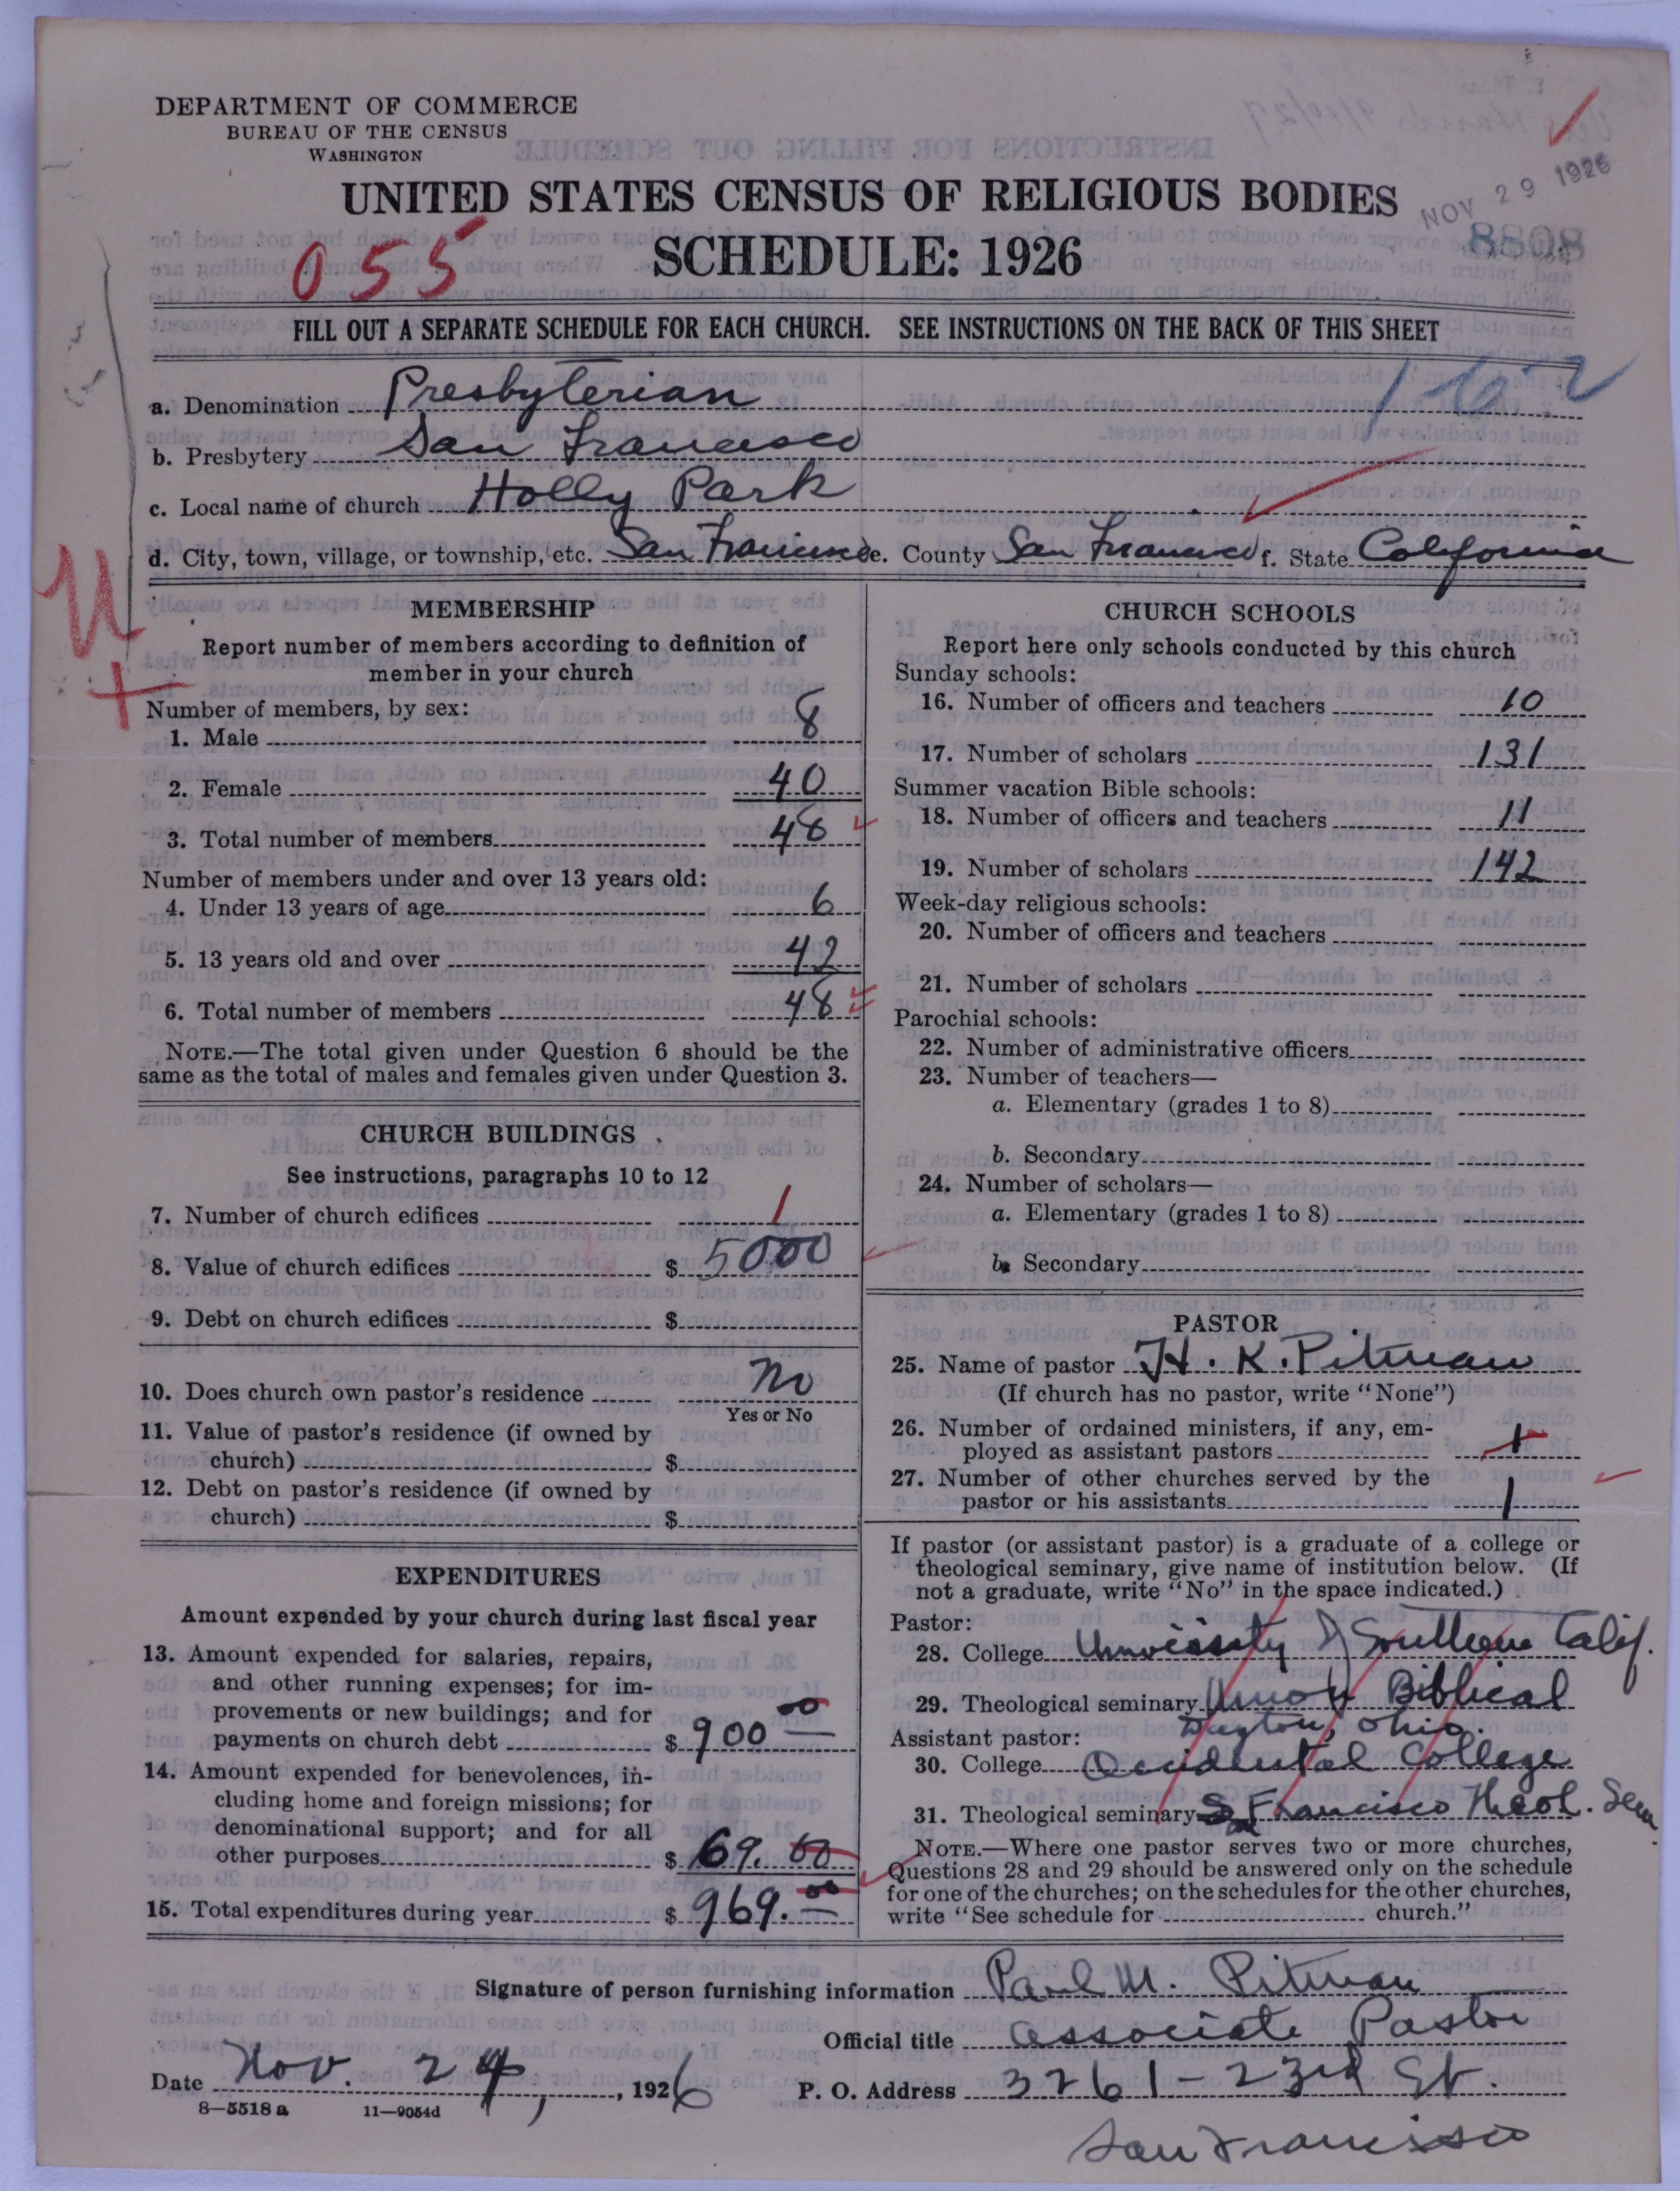 DEPARTMENT OF COMMERCE
BUREAU OF THE CENSUS
WASHINGTON
UNITED STATES CENSUS OF RELIGIOUS BODIES
NOV 29 1926
8808
055
SCHEDULE: 1926
FILL OUT A SEPARATE SCHEDULE FOR EACH CHURCH. SEE INSTRUCTIONS ON THE BACK OF THIS SHEET
a. Denomination Presbyterian
b. Presbytery San Francisco
c. Local name of church Holly Park
d. City, town, village, or township, etc. San Francisco e. County San Francisco f. State California
MEMBERSHIP
Report number of members according to definition of
member in your church
Number of members, by sex:
1. Male 8
2. Female 40
3. Total number of members 48
Number of members under and over 13 years old:
4. Under 13 years of age 6
5. 13 years old and over 42
6. Total number of members 48
NOTE.—The total given under Question 6 should be the
same as the total of males and females given under Question 3.
CHURCH BUILDINGS
See instructions, paragraphs 10 to 12
7. Number of church edifices 1
8. Value of church edifices $ 5000
9. Debt on church edifices $
10. Does church own pastor's residence No
Yes or No
11. Value of pastor's residence (if owned by
church) $
12. Debt on pastor's residence (if owned by
church) $
EXPENDITURES
Amount expended by your church during last fiscal year
13. Amount expended for salaries, repairs,
and other running expenses; for im-
provements or new buildings; and for
payments on church debt $ 900 00
14. Amount expended for benevolences, in-
cluding home and foreign missions; for
denominational support; and for all
other purposes $ 69. 00
15. Total expenditures during year $ 969. 00
CHURCH SCHOOLS
Report here only schools conducted by this church
Sunday schools:
16. Number of officers and teachers 10
17. Number of scholars 131
Summer vacation Bible schools:
18. Number of officers and teachers 11
19. Number of scholars 142
Week-day religious schools:
20. Number of officers and teachers
21. Number of scholars
Parochial schools:
22. Number of administrative officers
23. Number of teachers—
a. Elementary (grades 1 to 8)
b. Secondary
24. Number of scholars—
a. Elementary (grades 1 to 8)
b. Secondary
PASTOR
25. Name of pastor H. K. Pitman
(If church has no pastor, write "None")
26. Number of ordained ministers, if any, em-
ployed as assistant pastors 1
27. Number of other churches served by the
pastor or his assistants 1
If pastor (or assistant pastor) is a graduate of a college or
theological seminary, give name of institution below. (If
not a graduate, write "No" in the space indicated.)
Pastor:
28. College University of Southern Calif.
29. Theological seminary Union Biblical
Dayton, Ohio.
Assistant pastor:
30. College Occidental College
31. Theological seminary San Francisco Theol. Sem.
NOTE.—Where one pastor serves two or more churches,
Questions 28 and 29 should be answered only on the schedule
for one of the churches; on the schedules for the other churches,
write "See schedule for church."
Signature of person furnishing information Paul M. Pitman
Official title Associate Pastor
Date Nov. 24, 1926 P. O. Address 3261-23rd St.
8—5518 a 11—9054d
San Francisco